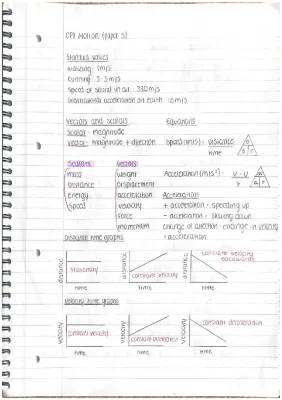 CP1 Motion (paper 5)
Standard values
walking - 1m/s
running - 3.5m/s
speed of sound in air - 330m/s
Gravitational acceleration on earth - 10m/s
Vectors and scalars
Equations
Scalar - magnitude
Vector - magnitude + direction
Speed (m/s) = distance
time
Scalars
Vectors
mass
weight
Acceleration (m/s²) = v - u
t
Distance
Displacement
Energy
acceleration
Acceleration
Speed
velocity
+ acceleration - speeding up
force
- acceleration - slowing down
momentum
change of direction - change in velocity
= acceleration
Distance time graphs
distance
stationary
time
distance
constant velocity
time
distance
constant velocity
backwards
time
Velocity time graphs
velocity
constant velocity
time
velocity
constant acceleration
time
velocity
constant deceleration
time